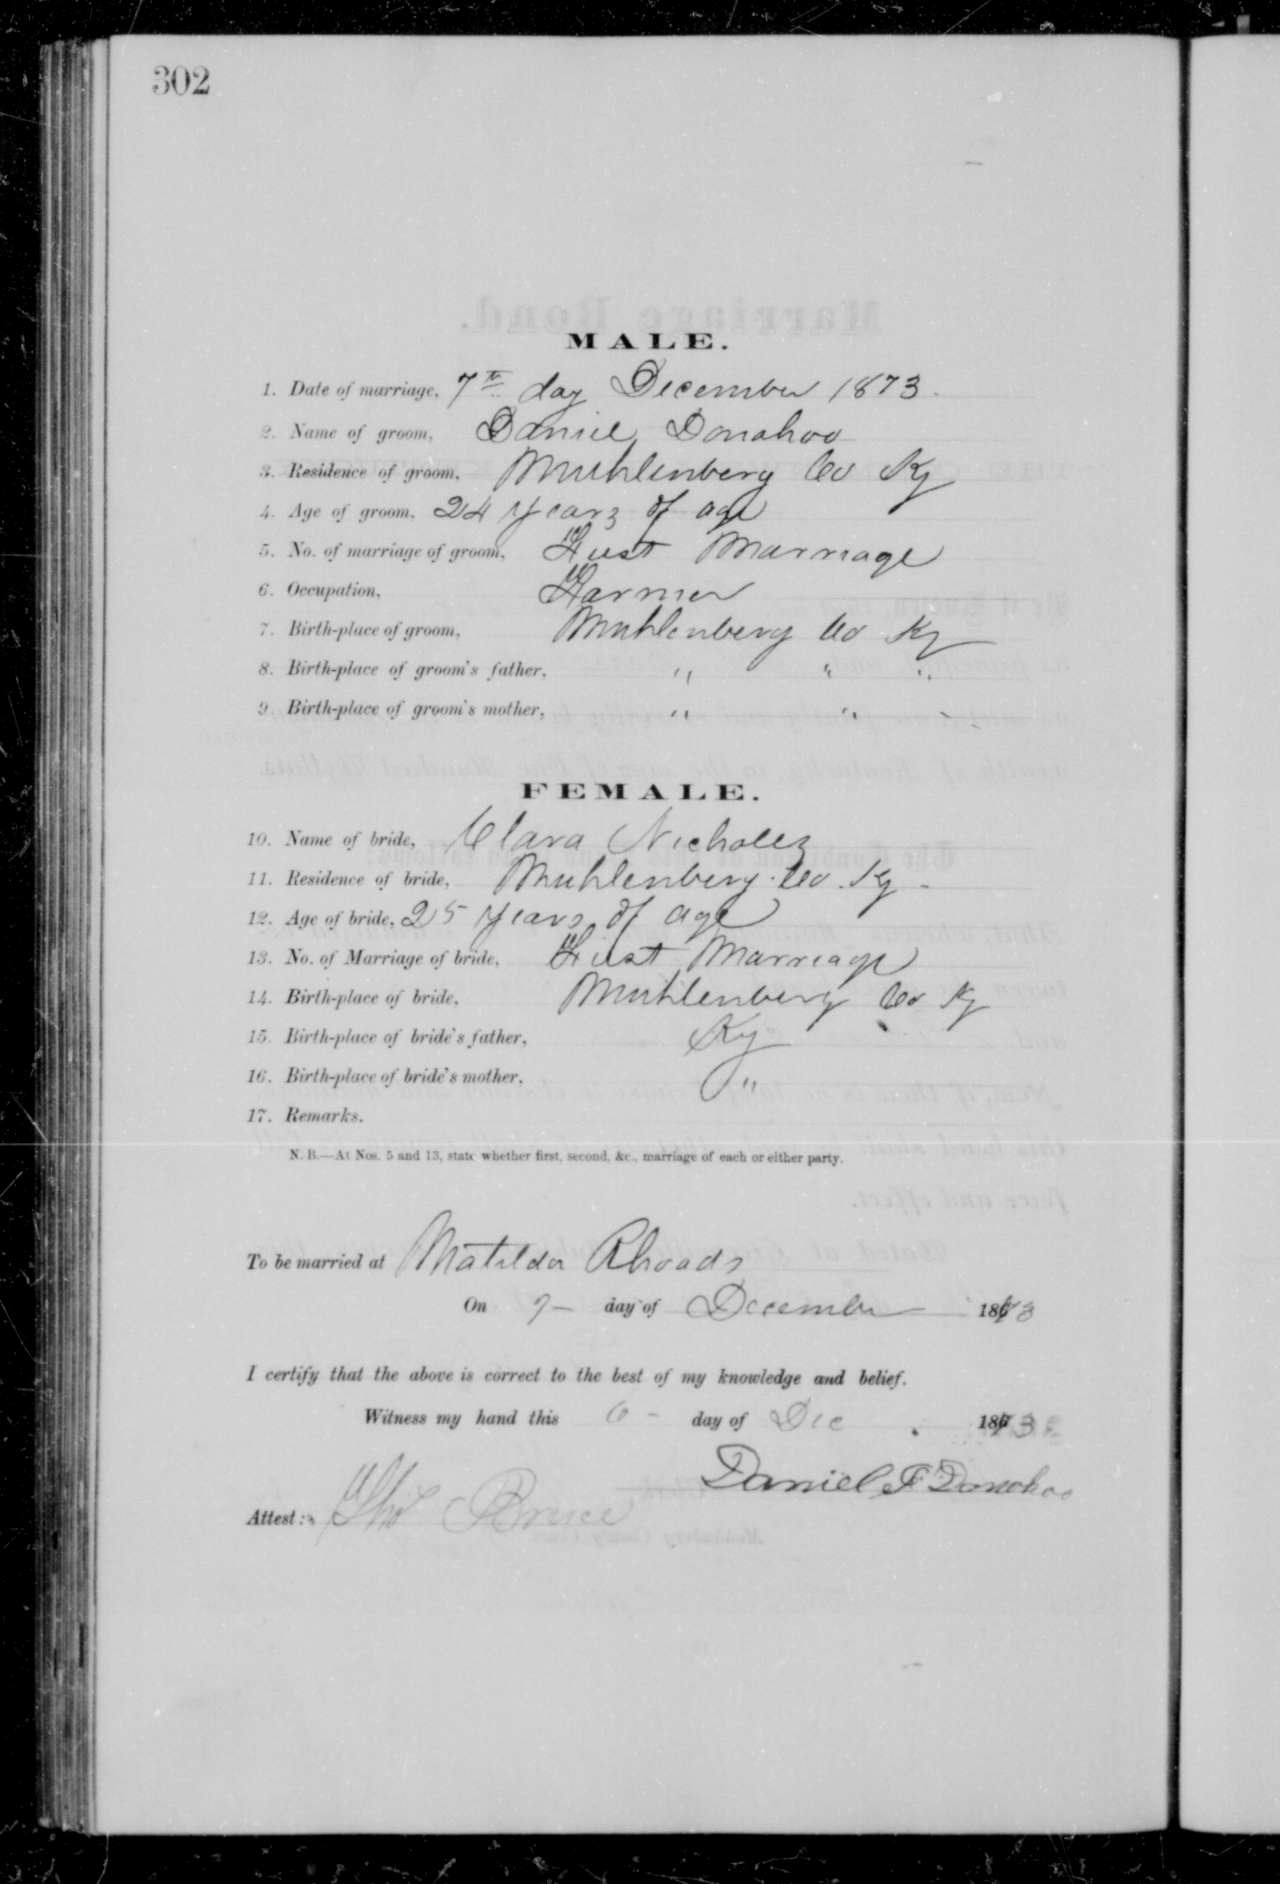 302
MALE.
1. Date of marriage, 7th day December 1873.
2. Name of groom, Daniel Donahoo
3. Residence of groom, Muhlenberg Co Ky
4. Age of groom, 24 years of age
5. No. of marriage of groom, First Marriage
6. Occupation, Farmer
7. Birth-place of groom, Muhlenberg Co Ky
8. Birth-place of groom's father, " " "
9. Birth-place of groom's mother, " " "
FEMALE.
10. Name of bride, Clara Nicholes
11. Residence of bride, Muhlenberg Co. Ky -
12. Age of bride, 25 years of age
13. No. of Marriage of bride, First Marriage
14. Birth-place of bride, Muhlenberg Co Ky
15. Birth-place of bride's father, Ky
16. Birth-place of bride's mother, "
17. Remarks.
N. B.—At Nos. 5 and 13, state whether first, second, &c., marriage of each or either party.
To be married at Matilda Rhoads
On 7 — day of December 1873
I certify that the above is correct to the best of my knowledge and belief.
Witness my hand this 6 - day of Dec. 1873.
Daniel F Donohoo
Attest: Tho Bruce